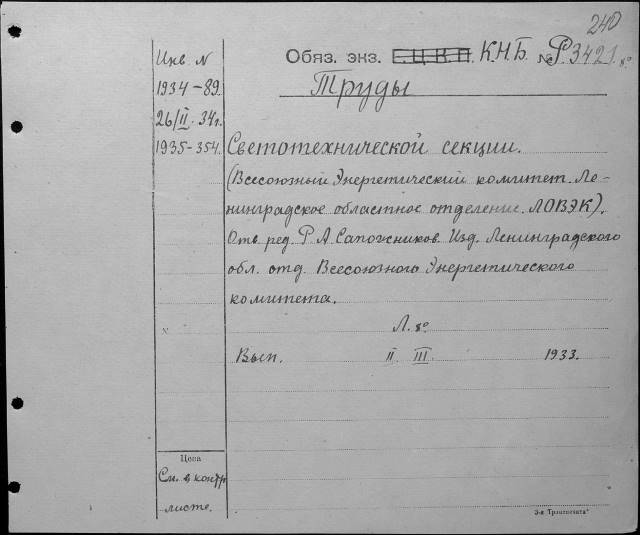 240
Обяз. экз. Г.Ц.К.П. К.Н.Б. № Р.3421. 8°
Труды
Инв. N
1934-89.
26/II. 34г.
1935-354.
Светотехнической секции.
(Всесоюзный Энергетический комитет. Ле-
нинградское областное отделение. ЛОВЭК).
Отв. ред. Р. А. Сапожников. Изд. Ленинградского
обл. отд. Всесоюзного Энергетического
комитета.
Л. 8°
Вып. II. III. 1933.
Цена
См. в контр.
листе.
3-я Транспечать